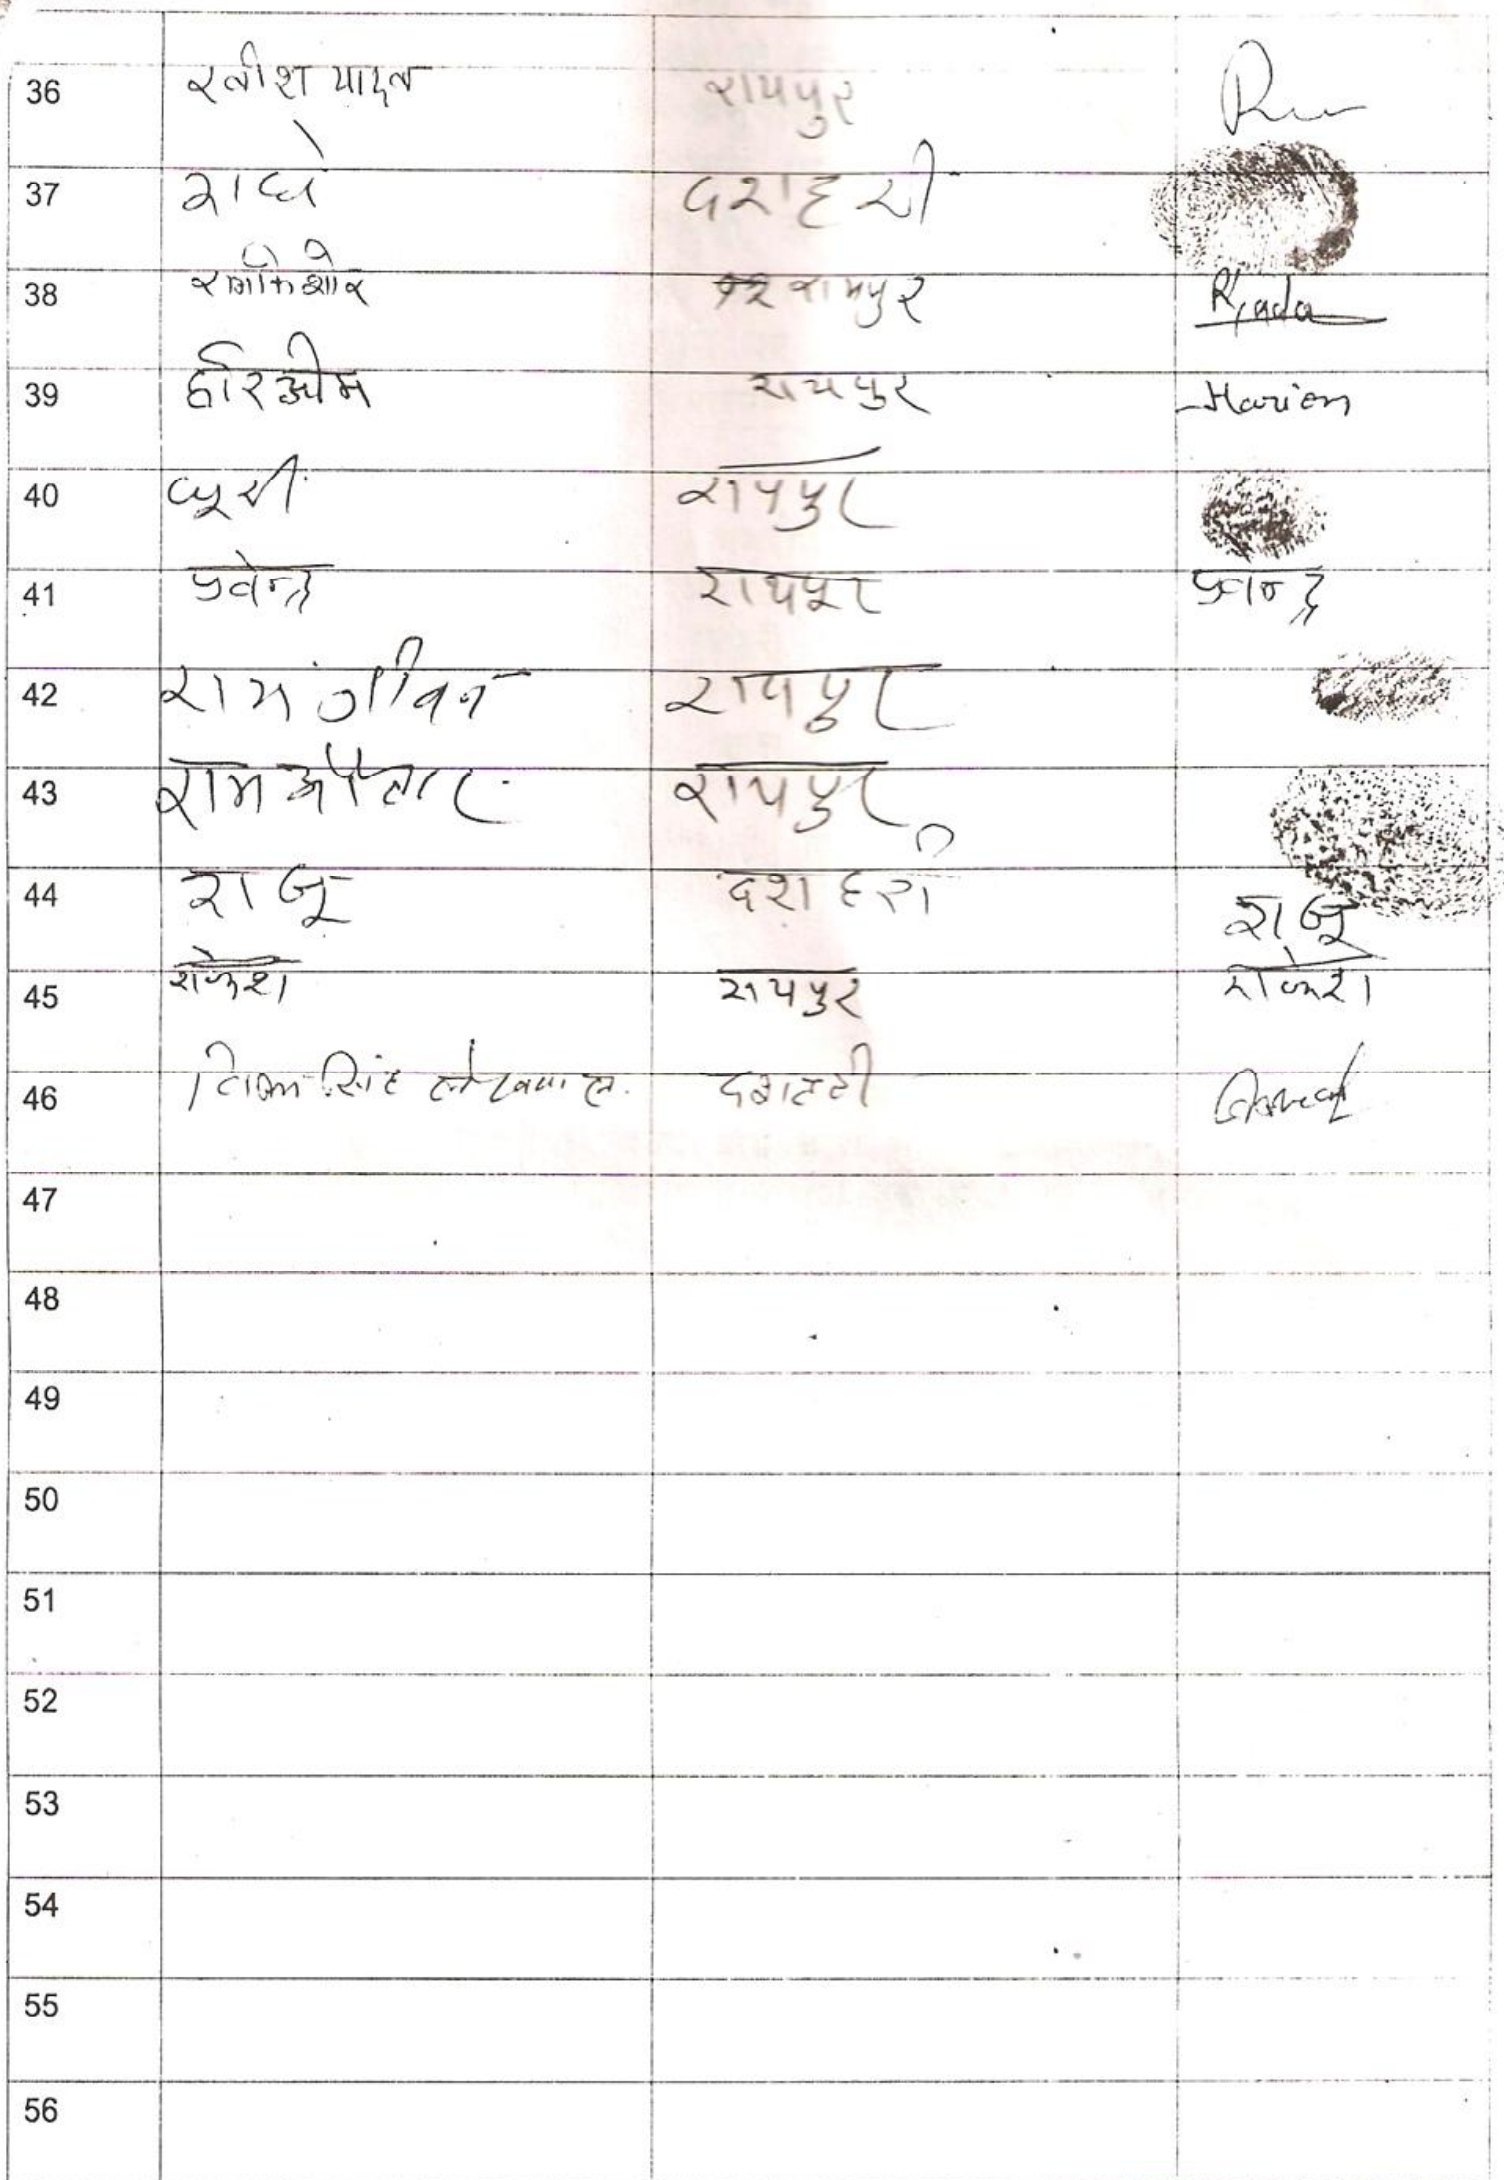 36 रतीश यादव रायपुर
37 राधे दशहरी
38 रामकिशोर रामपुर
39 हरिओम रायपुर Hariom
40 रायपुर
41 प्रवेन्द्र रायपुर प्रवेन्द्र
42 रामजीवन रायपुर
43 रामऔतार रायपुर
44 राजू दशहरी राजू
45 राकेश रायपुर राकेश
46 सिंह
47
48
49
50
51
52
53
54
55
56